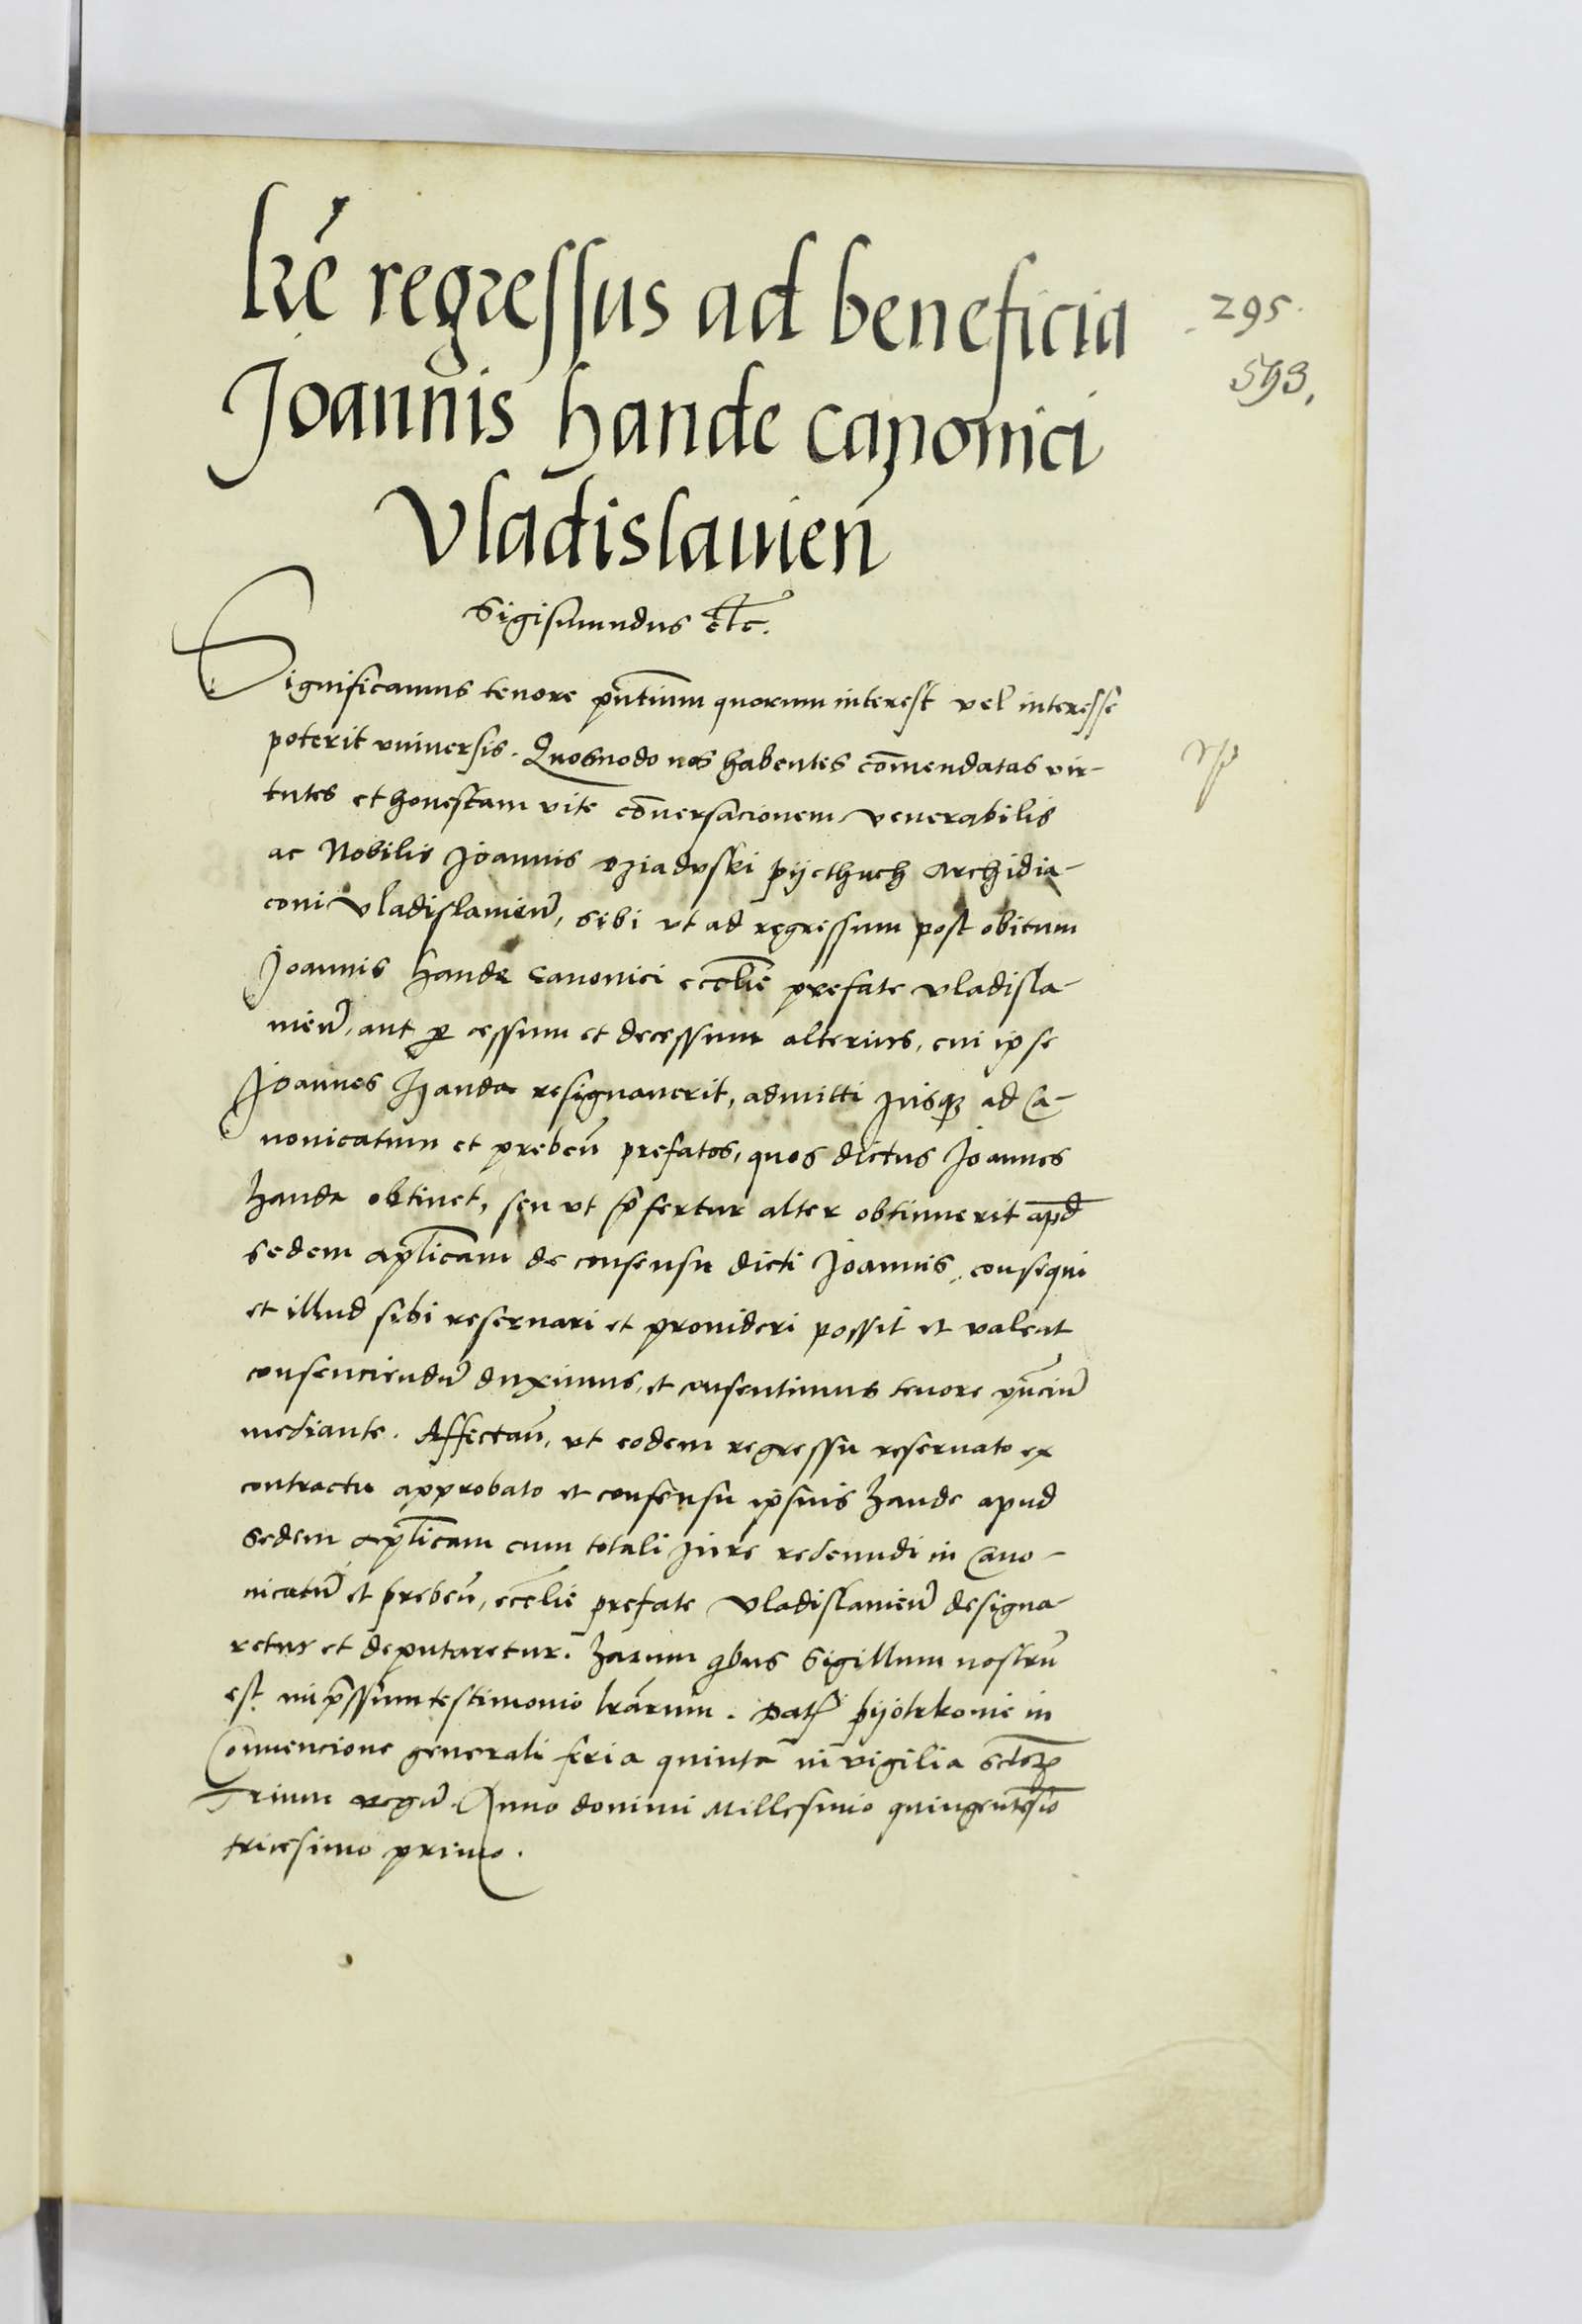 lr̃e regressus ad beneficia
295.
593.
Joannis hande canonici
Vladislauien̄
Sigismundus etc.
Significamus tenore p̄ntium quorum interest vel interesse
poterit vniuersis. Quomodo nos habentes com̄endatas vir-
tutes et honestam vite cōuersacionem venerabilis
ac Nobilis Joannis dziaduski pijethuch Archidia-
coni Vladislauien̄, sibi vt ad regressum post obitum
Joannis hande Canonici eccl̄ie prefate vladisla-
uien̄, aut per cessum et decessum alterius, cui ipse
Joannes Handa resignauerit, admitti jusq3 ad Ca-
nonicatum et preben̄ prefatos, quos dictus Joannes
Handa obtinet, seu vt p̄fertur alter obtinuerit apd̄
sedem ap̄licam de consensu dicti Joannis, consequi
et illud sibi reseruari et prouideri possit et valeat
consenciendū duximus, et consentimus tenore p̄nciū
mediante. Affectan̄, vt eodem regressu reseruato ex
contractu approbato et consensu ipsius Hande apud
Sedem ap̄licam cum totali jure redeundi in Cano-
nicatū et preben̄, eccl̄ie prefate Vladislauien̄ designa-
retur et deputaretur. Harum qibus Sigillum nostrū
est imp̄ssum testimonio lr̄arum. Dat̄ pijotrkouie in
Conuencione generali feria quinta in vigilia sctor̄
Trium regū. Anno domini Millesimo quingentesīo
tricesimo primo.